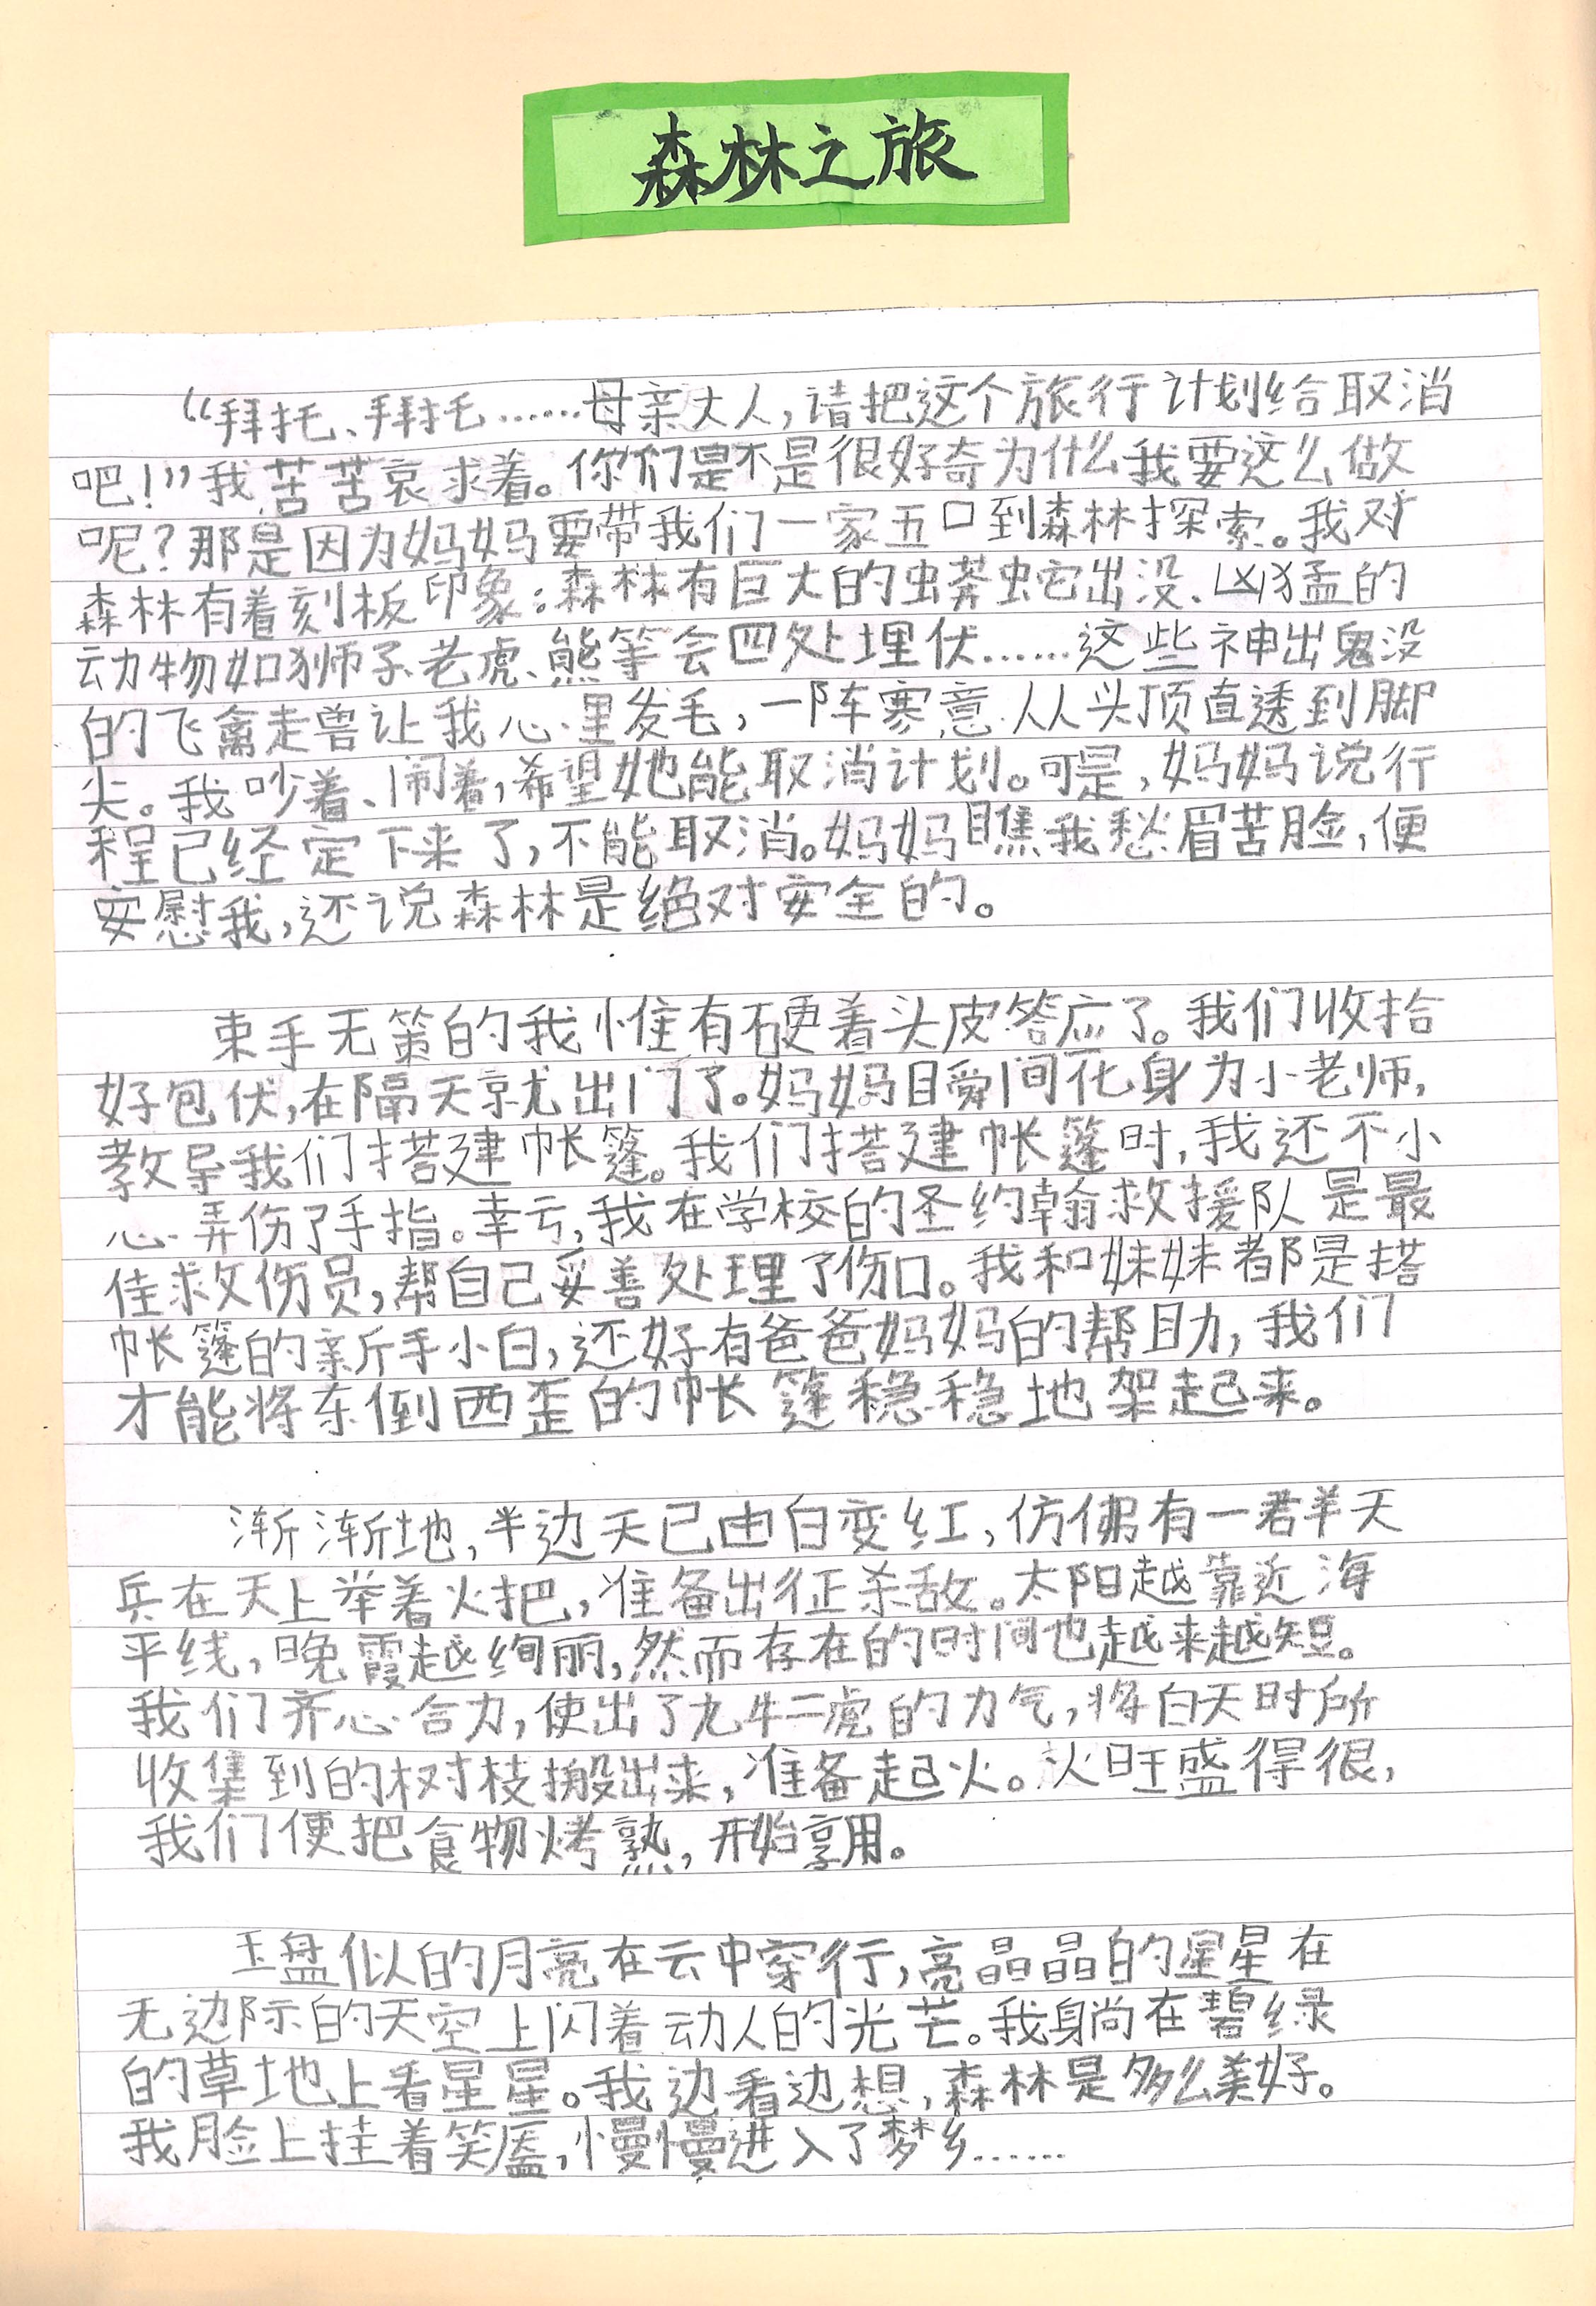 森林之旅
“拜托、拜托……母亲大人，请把这个旅行计划给取消
吧！”我苦苦哀求着。你们是不是很好奇为什么我要这么做
呢？那是因为妈妈要带我们一家五口到森林探索。我对
森林有着刻板印象：森林有巨大的虫蟒蛇出没、凶猛的
动物如狮子、老虎、熊等会四处埋伏……这些神出鬼没
的飞禽走兽让我心里发毛，一阵寒意从头顶直透到脚
尖。我吵着、闹着，希望她能取消计划。可是，妈妈说行
程已经定下来了，不能取消。妈妈瞧我愁眉苦脸，便
安慰我，还说森林是绝对安全的。
束手无策的我惟有硬着头皮答应了。我们收拾
好包伏，在隔天就出门了。妈妈瞬间化身为小老师，
教导我们搭建帐篷。我们搭建帐篷时，我还不小
心弄伤了手指。幸亏，我在学校的圣约翰救援队是最
佳救伤员，帮自己妥善处理了伤口。我和妹妹都是搭
帐篷的新手小白，还好有爸爸妈妈的帮助，我们
才能将东倒西歪的帐篷稳稳地架起来。
渐渐地，半边天已由白变红，仿佛有一群天
兵在天上举着火把，准备出征杀敌。太阳越靠近海
平线，晚霞越绚丽，然而存在的时间也越来越短。
我们齐心合力，使出了九牛二虎的力气，将白天时所
收集到的树枝搬出来，准备起火。火旺盛得很，
我们便把食物烤熟，开始享用。
玉盘似的月亮在云中穿行，亮晶晶的星星在
无边际的天空上闪着动人的光芒。我躺在碧绿
的草地上看星星。我边看边想，森林是多么美好。
我脸上挂着笑靥，慢慢进入了梦乡……